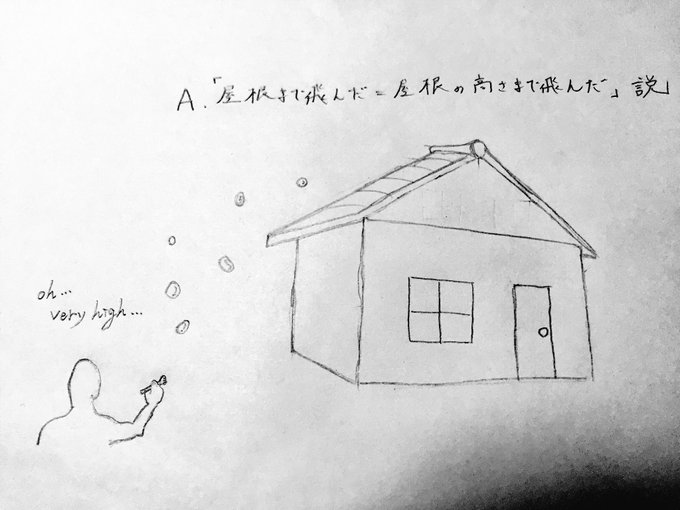 A.「屋根まで飛んだ=屋根の高さまで飛んだ」説
oh...
very high...